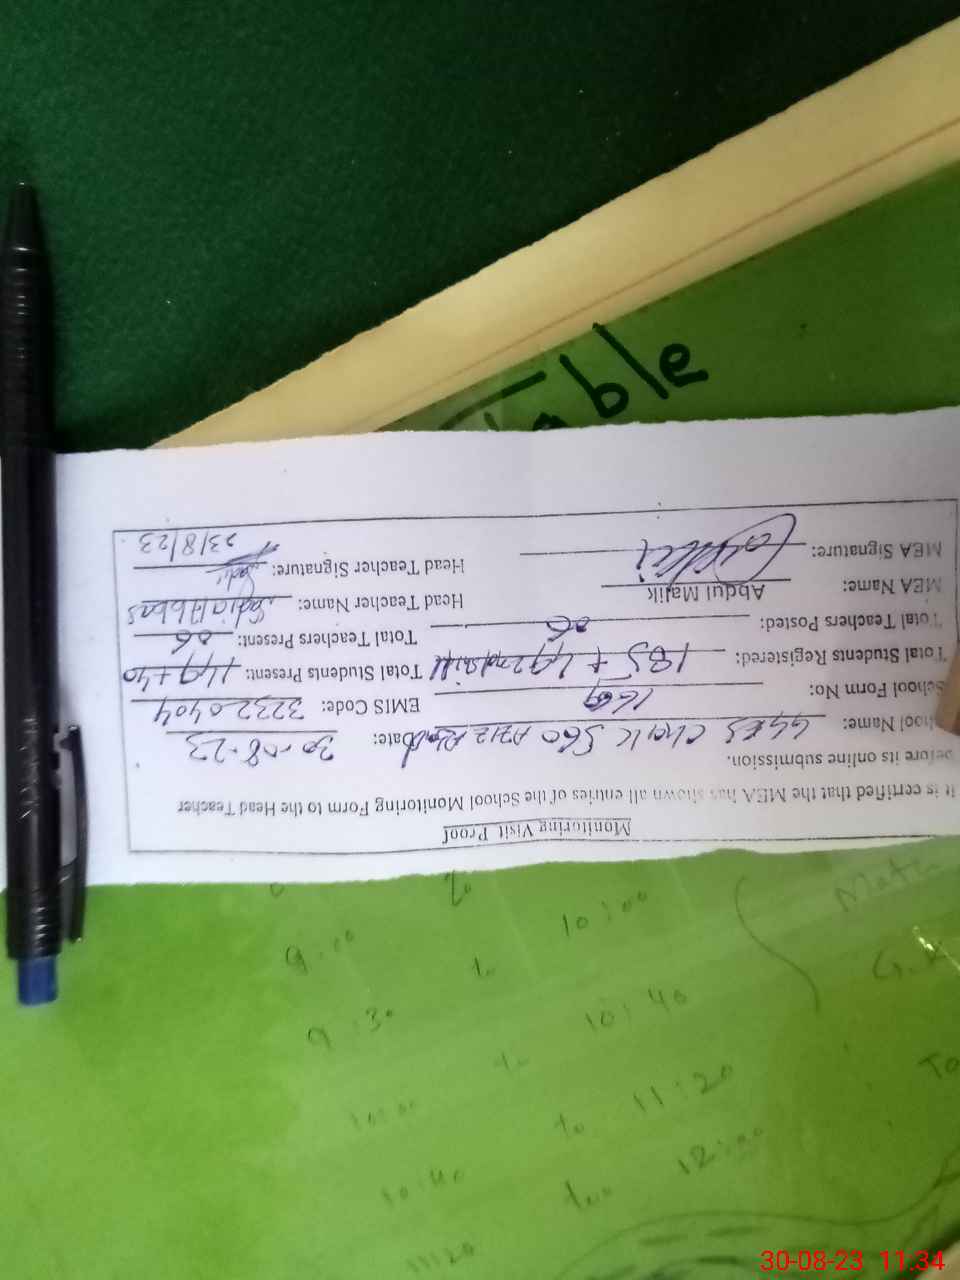 Monitoring Visit Proof
It is certified that the MEA has shown all entries of the School Monitoring Form to the Head Teacher
before its online submission.
School Name: GGES Chak 560 Date: 30-08-23
School Form No: EMIS Code: 32320404
Total Students Registered: 185 + 49 2nd shift Total Students Present: 149+40
Total Teachers Posted: 06 Total Teachers Present: 06
MEA Name: Abdul Malik Head Teacher Name: Sadia Abbas
MEA Signature: Head Teacher Signature:
23/8/23
able
to
9:00 to 10:00 Math
9:30 to 10:40 G.K
10:00 to 11:20
10:40 to 12:00
11:20
30-08-23 11:34